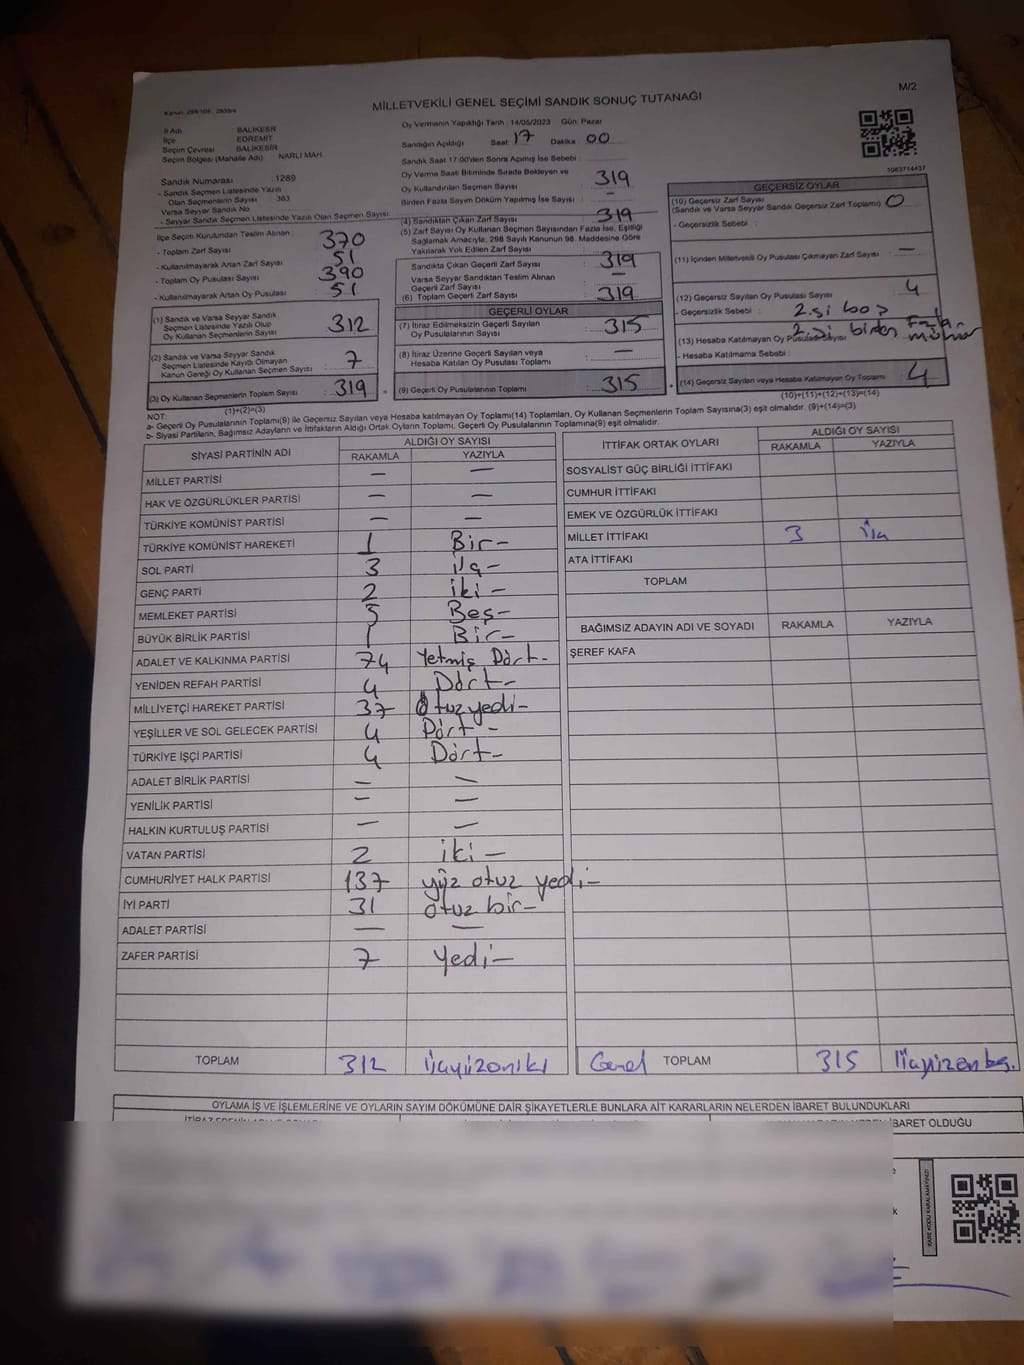 M/2
Kanun: 298/105 , 2839/4
MİLLETVEKİLİ GENEL SEÇİMİ SANDIK SONUÇ TUTANAĞI
İl Adı BALIKESİR
İlçe EDREMİT
Seçim Çevresi BALIKESİR
Seçim Bölgesi (Mahalle Adı) NARLI MAH.
Sandık Numarası : 1269
- Sandık Seçmen Listesinde Yazılı
Olan Seçmenlerin Sayısı : 363
Varsa Seyyar Sandık No
- Seyyar Sandık Seçmen Listesinde Yazılı Olan Seçmen Sayısı
İlçe Seçim Kurulundan Teslim Alınan :
- Toplam Zarf Sayısı 370
- Kullanılmayarak Artan Zarf Sayısı 51
- Toplam Oy Pusulası Sayısı 390
- Kullanılmayarak Artan Oy Pusulası 51
(1) Sandık ve Varsa Seyyar Sandık
Seçmen Listesinde Yazılı Olup
Oy Kullanan Seçmenlerin Sayısı 312
(2) Sandık ve Varsa Seyyar Sandık
Seçmen Listesinde Kayıtlı Olmayan
Kanun Gereği Oy Kullanan Seçmen Sayısı 7
(3) Oy Kullanan Seçmenlerin Toplam Sayısı 319
(1)+(2)=(3)
Oy Vermenin Yapıldığı Tarih : 14/05/2023 Gün: Pazar
Sandığın Açıldığı Saat : 17 Dakika : 00
Sandık Saat 17:00'den Sonra Açılmış İse Sebebi :
Oy Verme Saati Bitiminde Sırada Bekleyen ve
Oy Kullandırılan Seçmen Sayısı 319
Birden Fazla Sayım Döküm Yapılmış İse Sayısı : –
(4) Sandıktan Çıkan Zarf Sayısı 319
(5) Zarf Sayısı Oy Kullanan Seçmen Sayısından Fazla İse, Eşitliği
Sağlamak Amacıyla, 298 Sayılı Kanunun 98. Maddesine Göre
Yakılarak Yok Edilen Zarf Sayısı :
Sandıkta Çıkan Geçerli Zarf Sayısı : 319
Varsa Seyyar Sandıktan Teslim Alınan
Geçerli Zarf Sayısı : –
(6) Toplam Geçerli Zarf Sayısı : 319
GEÇERLİ OYLAR
(7) İtiraz Edilmeksizin Geçerli Sayılan
Oy Pusulalarının Sayısı : 315
(8) İtiraz Üzerine Geçerli Sayılan veya
Hesaba Katılan Oy Pusulası Toplamı : –
(9) Geçerli Oy Pusulalarının Toplamı : 315
1063714437
GEÇERSİZ OYLAR
(10) Geçersiz Zarf Sayısı
(Sandık ve Varsa Seyyar Sandık Geçersiz Zarf Toplamı) 0
- Geçersizlik Sebebi :
(11) İçinden Milletvekili Oy Pusulası Çıkmayan Zarf Sayısı –
(12) Geçersiz Sayılan Oy Pusulası Sayısı 4
- Geçersizlik Sebebi : 2.si boş
2.si birden Fazla mühür
(13) Hesaba Katılmayan Oy Pusulası Sayısı
- Hesaba Katılmama Sebebi :
(14) Geçersiz Sayılan veya Hesaba Katılmayan Oy Toplamı 4
(10)+(11)+(12)+(13)=(14)
NOT:
a- Geçerli Oy Pusulalarının Toplamı(9) ile Geçersiz Sayılan veya Hesaba katılmayan Oy Toplamı(14) Toplamları, Oy Kullanan Seçmenlerin Toplam Sayısına(3) eşit olmalıdır. (9)+(14)=(3)
b- Siyasi Partilerin, Bağımsız Adayların ve İttifakların Aldığı Ortak Oyların Toplamı, Geçerli Oy Pusulalarının Toplamına(9) eşit olmalıdır.
SİYASİ PARTİNİN ADI ALDIĞI OY SAYISI
RAKAMLA YAZIYLA
MİLLET PARTİSİ – –
HAK VE ÖZGÜRLÜKLER PARTİSİ – –
TÜRKİYE KOMÜNİST PARTİSİ – –
TÜRKİYE KOMÜNİST HAREKETİ 1 Bir–
SOL PARTİ 3 üç–
GENÇ PARTİ 2 iki –
MEMLEKET PARTİSİ 5 Beş–
BÜYÜK BİRLİK PARTİSİ 1 Bir–
ADALET VE KALKINMA PARTİSİ 74 Yetmiş Dört–
YENİDEN REFAH PARTİSİ 4 Dört–
MİLLİYETÇİ HAREKET PARTİSİ 37 Otuzyedi–
YEŞİLLER VE SOL GELECEK PARTİSİ 4 Dört –
TÜRKİYE İŞÇİ PARTİSİ 4 Dört–
ADALET BİRLİK PARTİSİ – –
YENİLİK PARTİSİ – –
HALKIN KURTULUŞ PARTİSİ – –
VATAN PARTİSİ 2 iki –
CUMHURİYET HALK PARTİSİ 137 yüz otuz yedi–
İYİ PARTİ 31 otuz bir–
ADALET PARTİSİ – –
ZAFER PARTİSİ 7 Yedi–
TOPLAM 312 Üçyüzoniki
İTTİFAK ORTAK OYLARI ALDIĞI OY SAYISI
RAKAMLA YAZIYLA
SOSYALİST GÜÇ BİRLİĞİ İTTİFAKI
CUMHUR İTTİFAKI
EMEK VE ÖZGÜRLÜK İTTİFAKI
MİLLET İTTİFAKI 3 üç
ATA İTTİFAKI
TOPLAM
BAĞIMSIZ ADAYIN ADI VE SOYADI RAKAMLA YAZIYLA
ŞEREF KAFA
Genel TOPLAM 315 Üçyüzonbeş.
OYLAMA İŞ VE İŞLEMLERİNE VE OYLARIN SAYIM DÖKÜMÜNE DAİR ŞİKAYETLERLE BUNLARA AİT KARARLARIN NELERDEN İBARET BULUNDUKLARI
İBARET OLDUĞU
KARE KODU KARALAMAYINIZ!